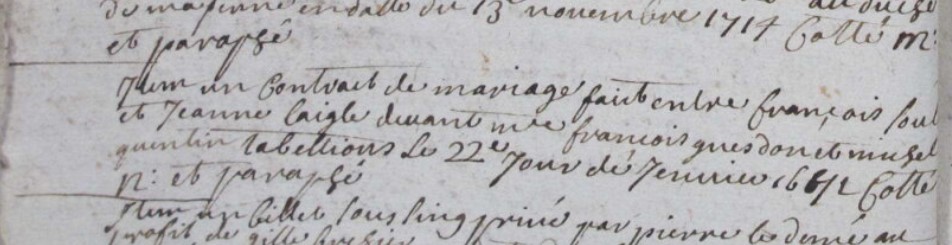 de endatte du 13e novembre 1714 Cotté m:
et paraphé
Item un Contract de mariage fait entre françois
et Jeanne laigle devant mre françois guesdon et
quentin tabellions Le 22e Jour de Jenvier Cotté
n: et paraphé
Item un billet sous sing privé par pierre
profit de gille